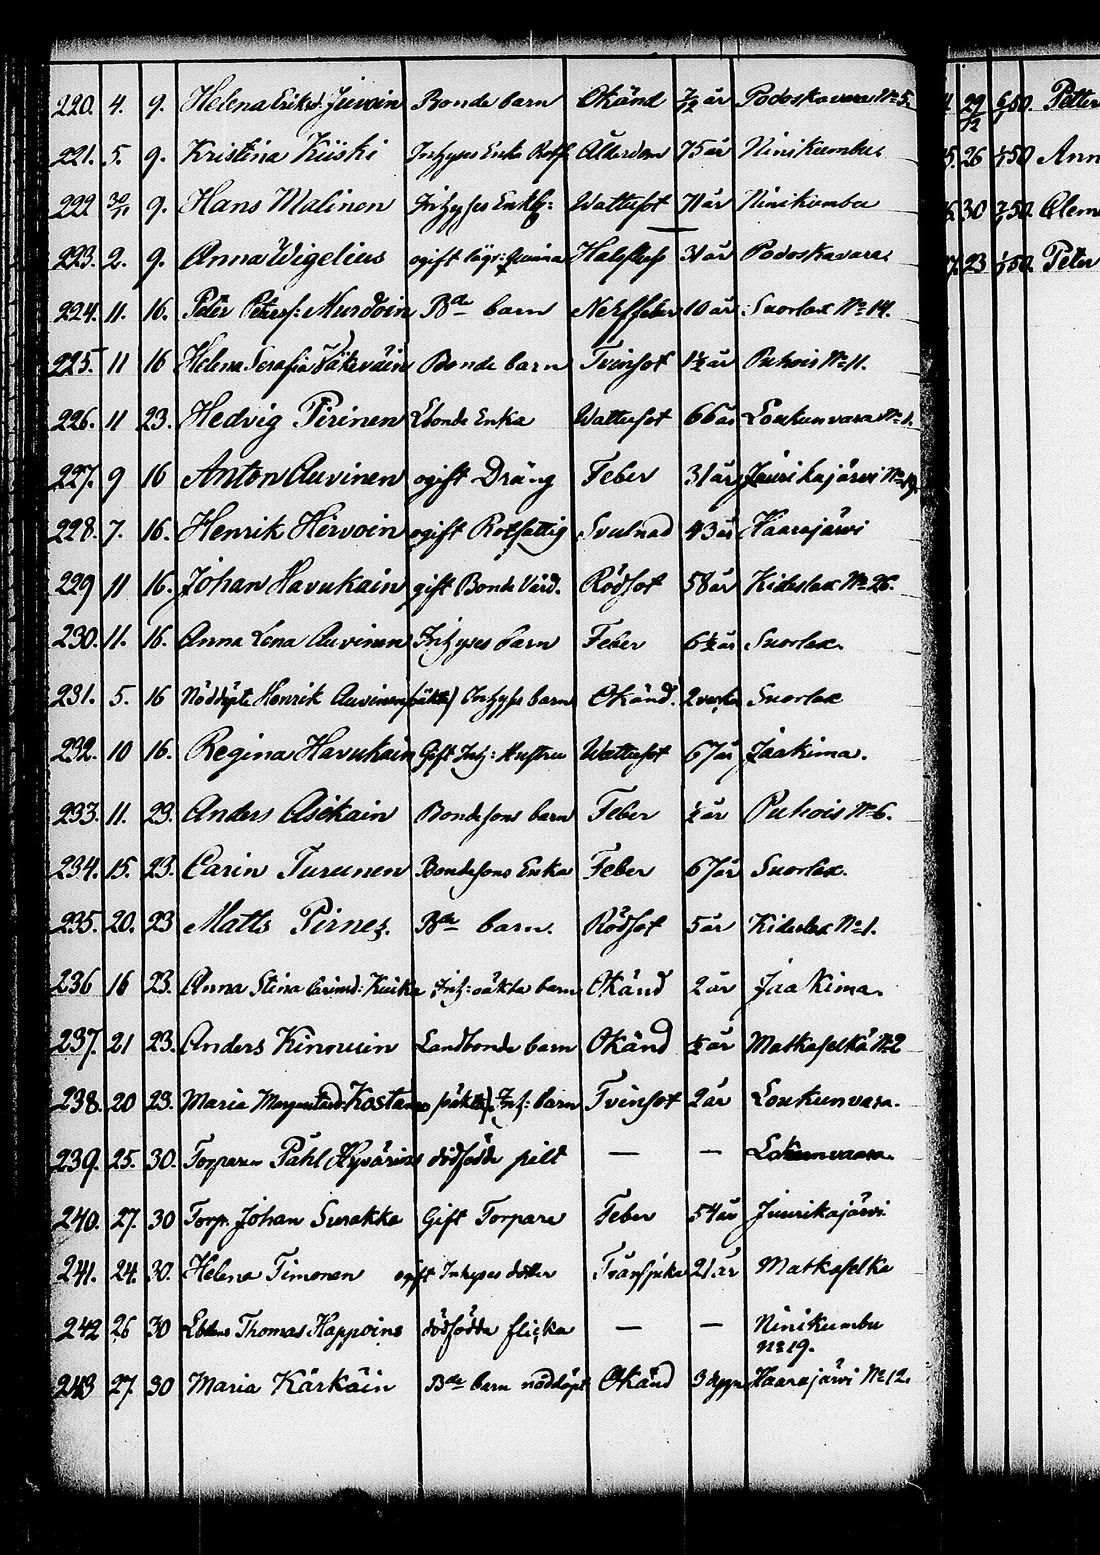 220. 4. 9. Helena Eriksd. Juvoin Bonde barn Okänd 7/12 år Podoskavara No 5.
221. 5. 9. Kristina Kiiski Inhyses Enka Ålderdom 75 år Niinikumbu
222 30/11 9. Hans Malinen Inhyses Enkl: Wattusot 71 år Niinikumbu
223. 2. 9. Anna Wigelius ogift Halsfluss 31 år Podoskavara
224. 11. 16. Peter Petersf: Murdoin Bde barn Nerffeber 10 år Suorlax No 14.
225. 11 16 Helena Serafia Väkeväin Bonde barn Tvinsot 1½ år Puhois No 11.
226. 11 23. Hedvig Pirinen Ebonde Enka Wattusot 66 år Loukunvara No 1.
227. 9 16 Anton Auvinen ogift Dräng Feber 31 år Juurikajärvi No 19.
228. 7. 16. Henrik Hirvoin ogift Rotfattig Svulnad 43 år Haarajärvi
229 11 16. Johan Havukain gift Bonde Värd. Rödsot 58 år Kideslax No 26.
230. 11. 16. Anna Lena Auvinen Inhyses barn Feber 6½ år Suorlax.
231. 5. 16 Nöddöpte Henrik Auvinen (oäkta) Inhyses barn Okänd. 2 veckor Suorlax
232. 10 16. Regina Havukain Gift Inh: Hustru Wattusot 67 år Jaakima.
233. 11. 23. Anders Asikain Bondesons barn Feber ½ år Puhois No 6.
234. 15. 23. Carin Turunen Bondesons Enka Feber 67 år Suorlax.
235. 20. 23 Matts Pirnes. Bde barn. Rödsot 5 år Kideslax No 1.
236 16 23. Anna Stina Carinsd: Kuika Inh: oäkta barn Okänd 2 år Jaakima.
237. 21 23. Anders Kinnuin Landbonde barn Okänd ½ år Matkaselkä No 2
238. 20 23. Maria Margaretasd. Kostamo (oäkta) Inh: barn Tvinsot 2 år Loukunvara.
239. 25. 30. Torparen Påhl Hyvärins dödfödde pilt — — Lokunvaara.
240. 27. 30 Torp. Johan Surakka Gift Torpare Feber 54 år Juurikajärvi
241. 24. 30. Helena Timonen ogift Inhyses dotter Tvärsjuka 21 år Matkaselka
242 26 30 Ebdens Thomas Happoins dödfödda flicka — — Niinikumbu
No 19.
243 27. 30 Maria Kärkäin Bde barn nöddöpt Okänd 3 dygn Haarajärvi No 12.
29/12 50 Petter
26 50 Ann
30 50 Clem
23 50 Peter